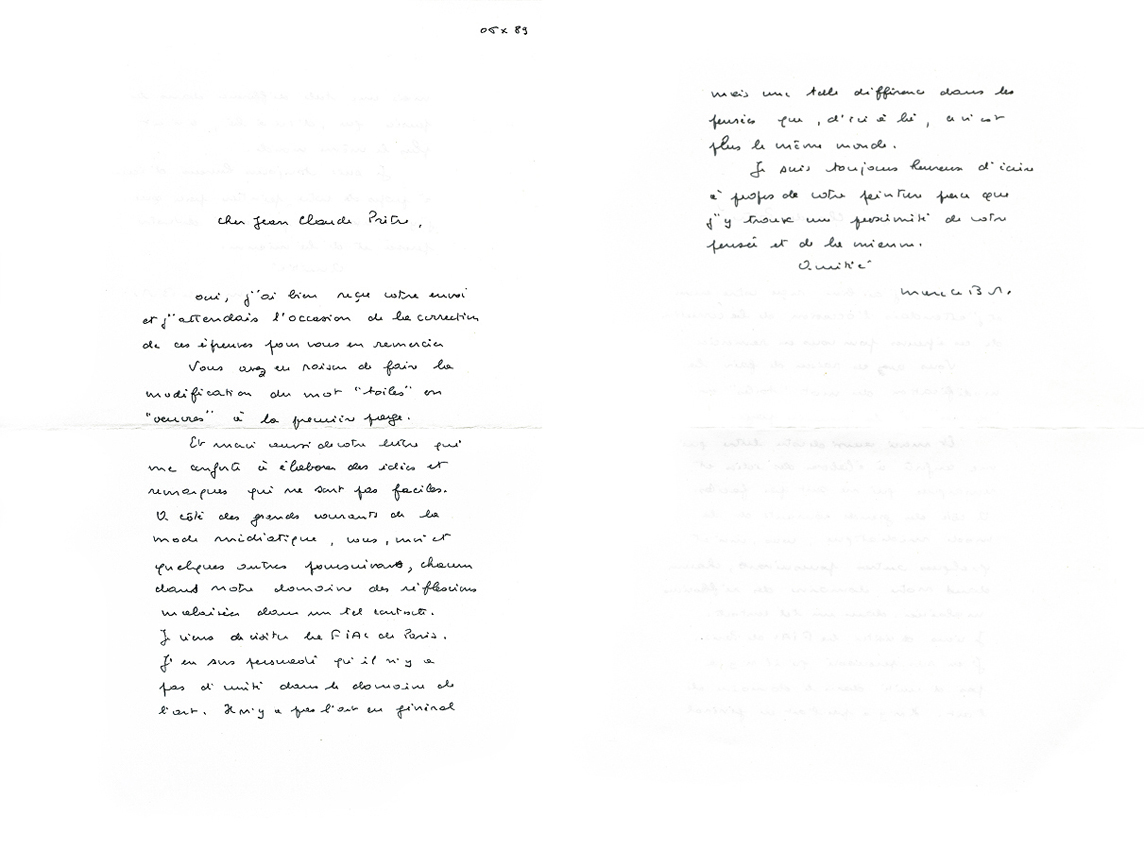 05 X 89
Cher Jean Claude Prêtre,
oui, j'ai bien reçu votre envoi
et j'attendais l'occasion de la correction
de ces épreuves pour vous en remercier
Vous avez eu raison de faire la
modification du mot "toiles" en
"oeuvres" à la première page.
Et merci aussi de votre lettre qui
me à élaborer des idées et
remarques qui ne sont pas faciles.
A côté des grands courants de la
mode médiatique, vous, moi et
quelques autres poursuivons, chacun
dans notre domaine des réflexions
malaisées dans un tel contexte.
Je viens de visiter la FIAC de Paris.
J'en suis persuadé qu'il n'y a
pas d'unité dans le domaine de
l'art. Il n'y a pas l'art en général
mais une telle différence dans les
pensées que, d'ici à là, ce n'est
plus le même monde.
Je suis toujours heureux d'écrire
à propos de votre peinture parce que
j'y trouve une proximité de votre
pensée et de la mienne.
Amitié